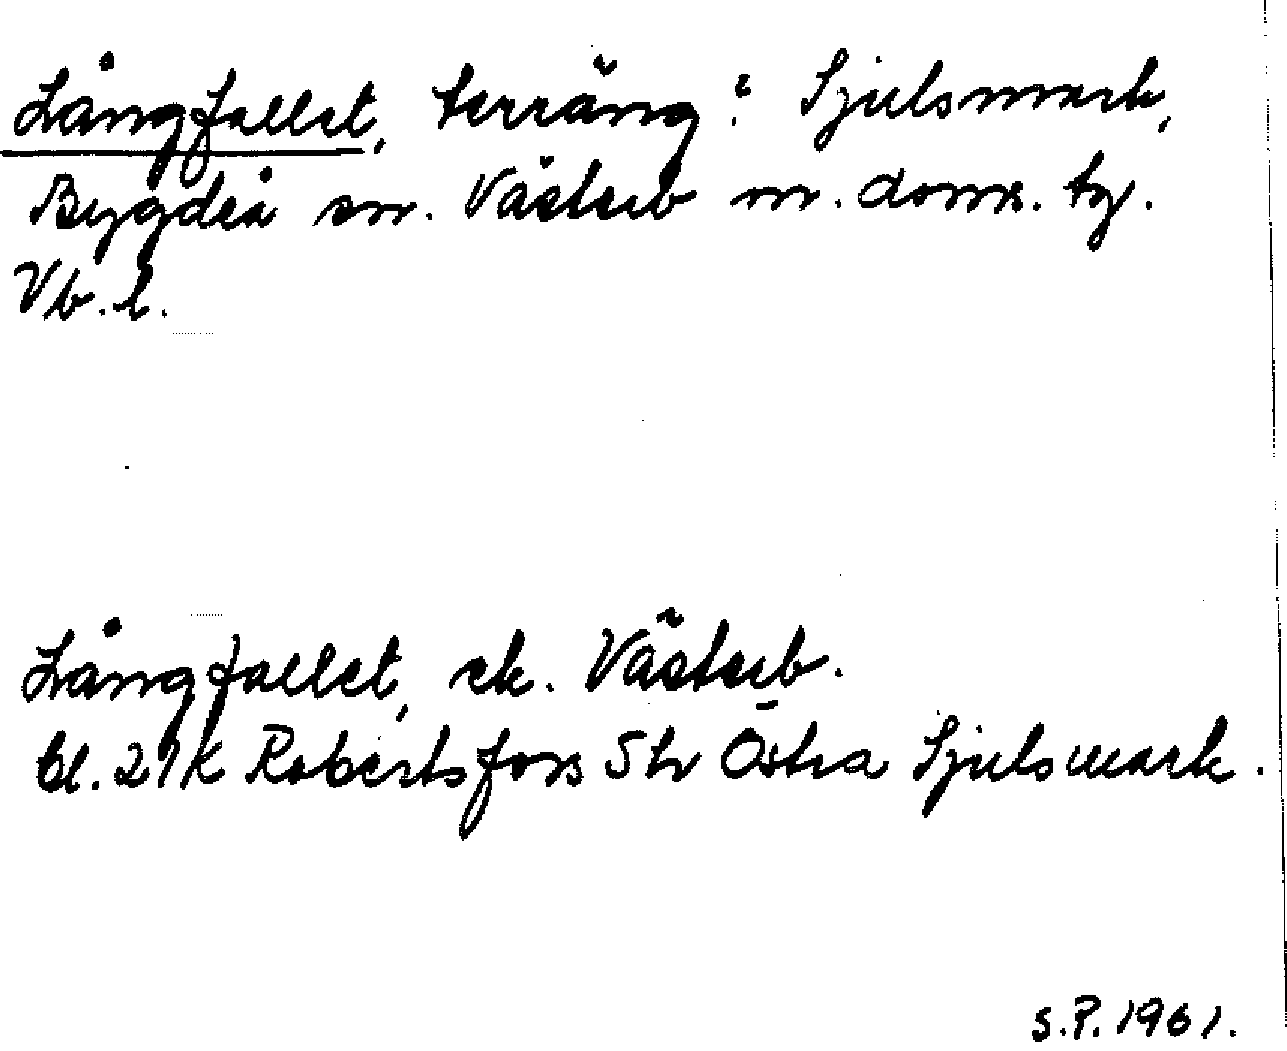 Långfallet, terräng: Sjulsmark,
Bygdeå sn. Västerb n. doms. tg.
Vb. l.
Långfallet, ek. Västerb.
bl. 21K Robertsfors Str Östra Sjulsmark.
S.P. 1961.